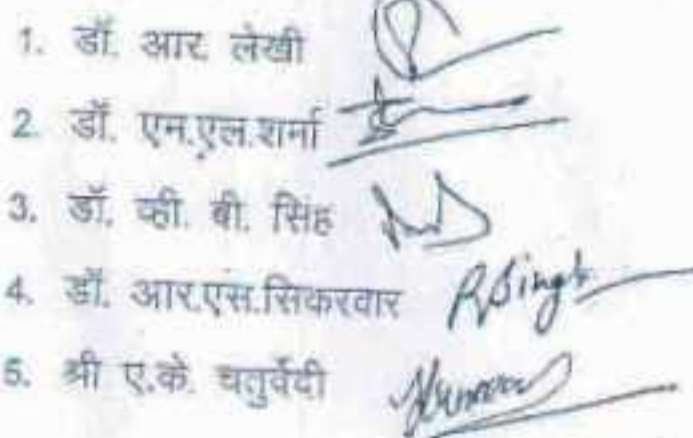 1. डॉ. आर. लेखी
2. डॉ. एम.एल.शर्मा
3. डॉ. व्ही. बी. सिंह
4. डॉ. आर.एस.सिकरवार RSingh
5. श्री ए.के. चतुर्वेदी